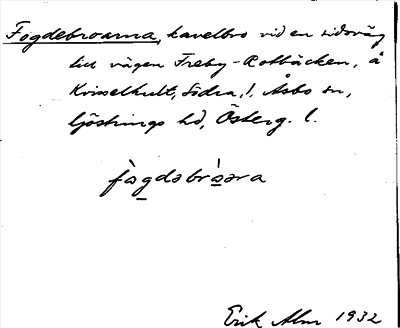 Fogdebroarna, kavelbro vid en sidoväg
till vägen Treby-Rotbäcken, å
Kvisselhult, Södra, l, Åsbo sn,
Göstrings hd, Österg. l.
fògdəbròəra
Erik Alm 1932